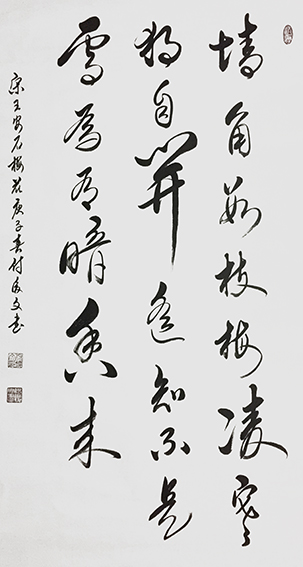 墙角数枝梅凌寒
独自开遥知不是
雪为有暗香来
宋王安石梅花庚子春付承文书